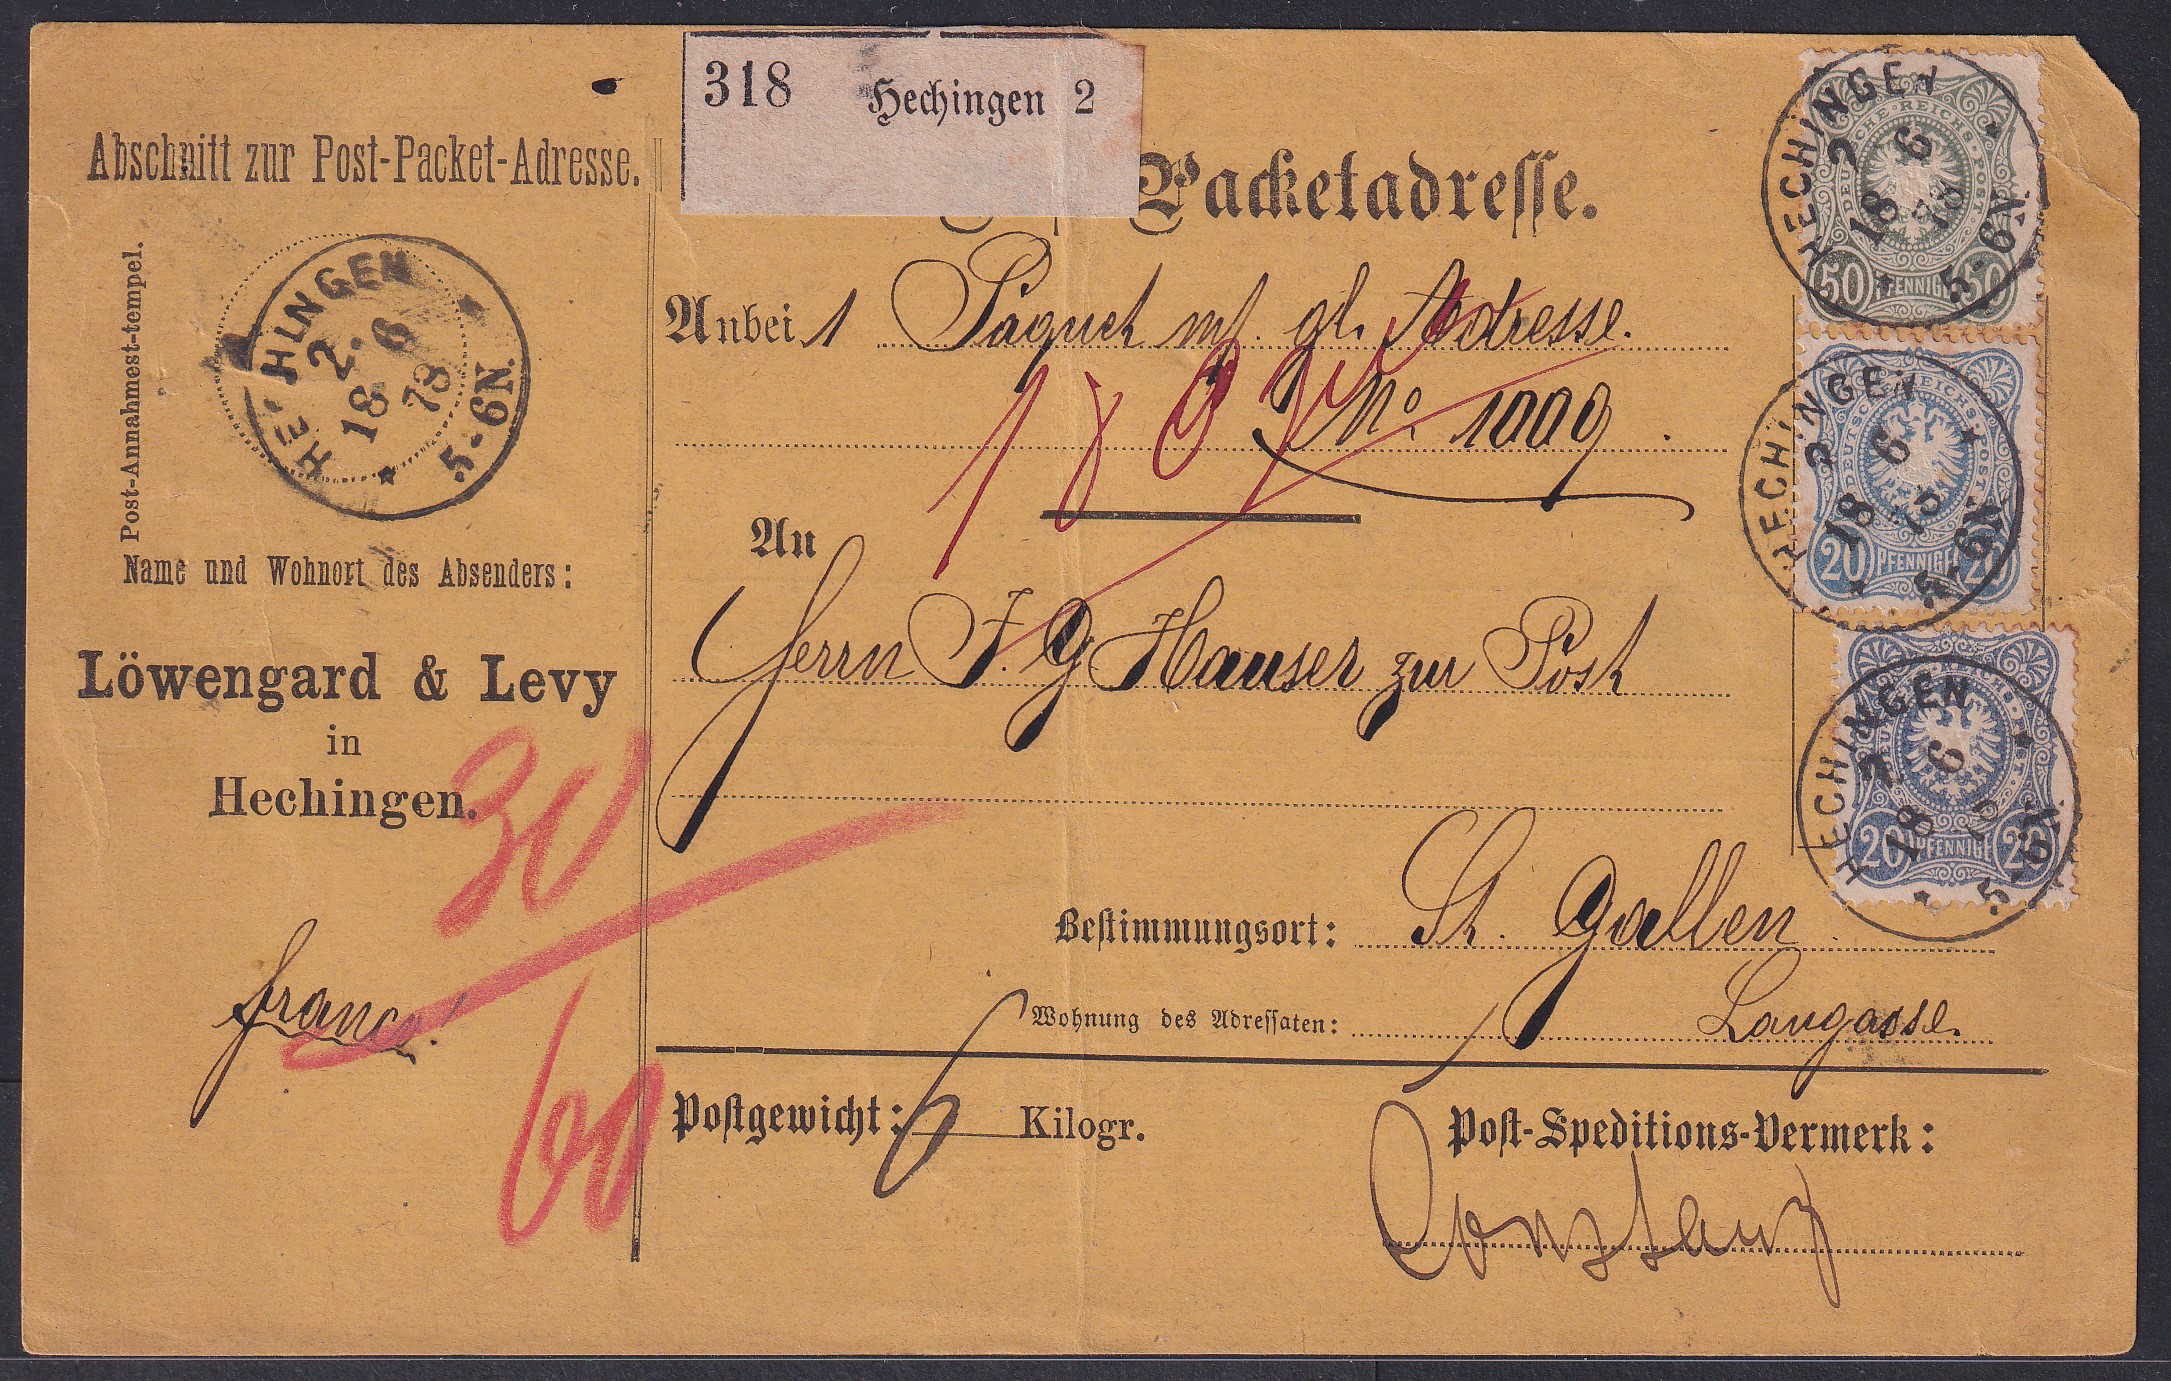 318 Hechingen 2
Abschnitt zur Post-Packet-Adresse.
Packetadresse.
Post-Annahmest-tempel.
HECHINGEN
2.
18 6
78
5-6N.
Name und Wohnort des Absenders:
Löwengard & Levy
in
Hechingen.
30
60
franco!
Anbei 1 Paquet mt. gl. Adresse.
No 1009
An
Herrn J. G Hauser zur Post
Bestimmungsort: St. Gallen
Wohnung des Adressaten: Langasse.
Postgewicht: 6 Kilogr.
Post-Speditions-Vermerk:
Constanz
DEUTSCHE REICHS-POST
50 PFENNIGE 50
HECHINGEN
2
18 6
78
5-6N
DEUTSCHE REICHS-POST
20 PFENNIGE 20
HECHINGEN
2
18 6
5-6N
DEUTSCHE REICHS-POST
20 PFENNIGE 20
HECHINGEN
2
18 6
5-6N